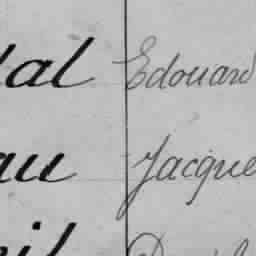 tal Edouard
au Jacque